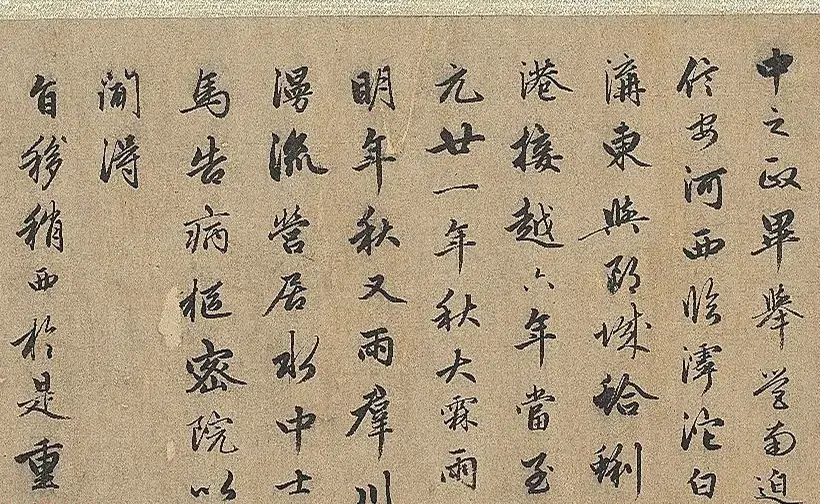 中之政畢舉營南迫
信安河西臨滹沱白
溝東與郡城蛤蜊
港接越六年當至
元廿一年秋大霖雨
明年秋又雨羣川
漫流營居水中士
馬告病樞密院以
聞得
旨移稍西於是重